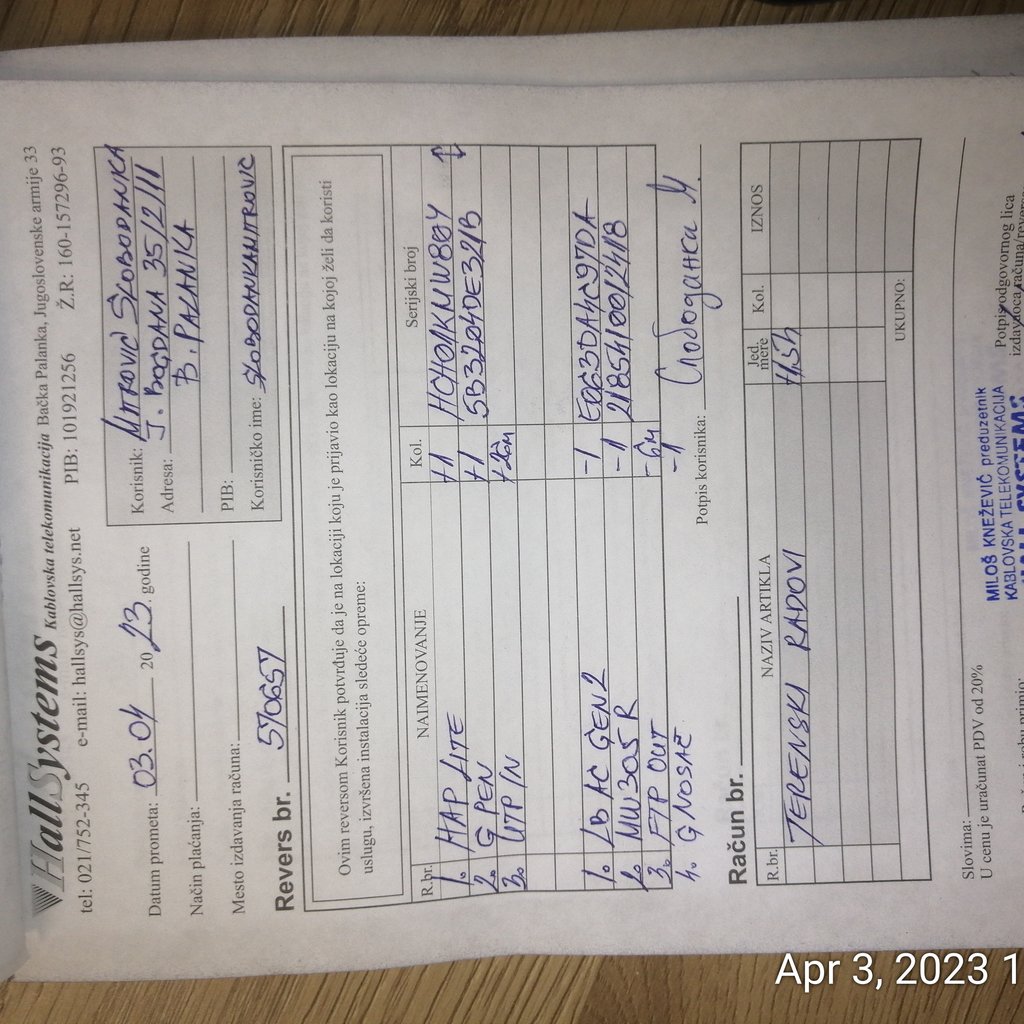 HallSystems Kablovska telekomunikacija Bačka Palanka, Jugoslovenske armije 33
tel: 021/752-345 e-mail: hallsys@hallsys.net PIB: 101921256 Ž.R.: 160-157296-93
Datum prometa: 03.04 20 23. godine
Način plaćanja:
Mesto izdavanja računa:
Korisnik: MITROVIĆ SLOBODANKA
Adresa: J. BOGDANA 35/2/III
B. PALANKA
PIB:
Korisničko ime: SLOBODANKAMITROVIC
Revers br. 570657
Ovim reversom Korisnik potvrđuje da je na lokaciji koju je prijavio kao lokaciju na kojoj želi da koristi
uslugu, izvršena instalacija sledeće opreme:
R.br. NAIMENOVANJE Kol. Serijski broj
1. HAP LITE +1 HCH01KMW804
2. G PEN +1 5B3204DE32/B
3. UTP IN +26m
1. LB AC GEN2 -1 E063DA4C97DA
2. MW305R -1 2185410012418
3. FTP OUT -6m
4. G NOSAČ -1
Potpis korisnika: Слободанка М.
Račun br.
R.br. NAZIV ARTIKLA Jed. mere Kol. IZNOS
TERENSKI RADOVI
UKUPNO:
Slovima:
U cenu je uračunat PDV od 20%
MILOŠ KNEŽEVIĆ preduzetnik
KABLOVSKA TELEKOMUNIKACIJA
Potpis odgovornog lica
izdavaoca računa/reversa
Apr 3, 2023 1